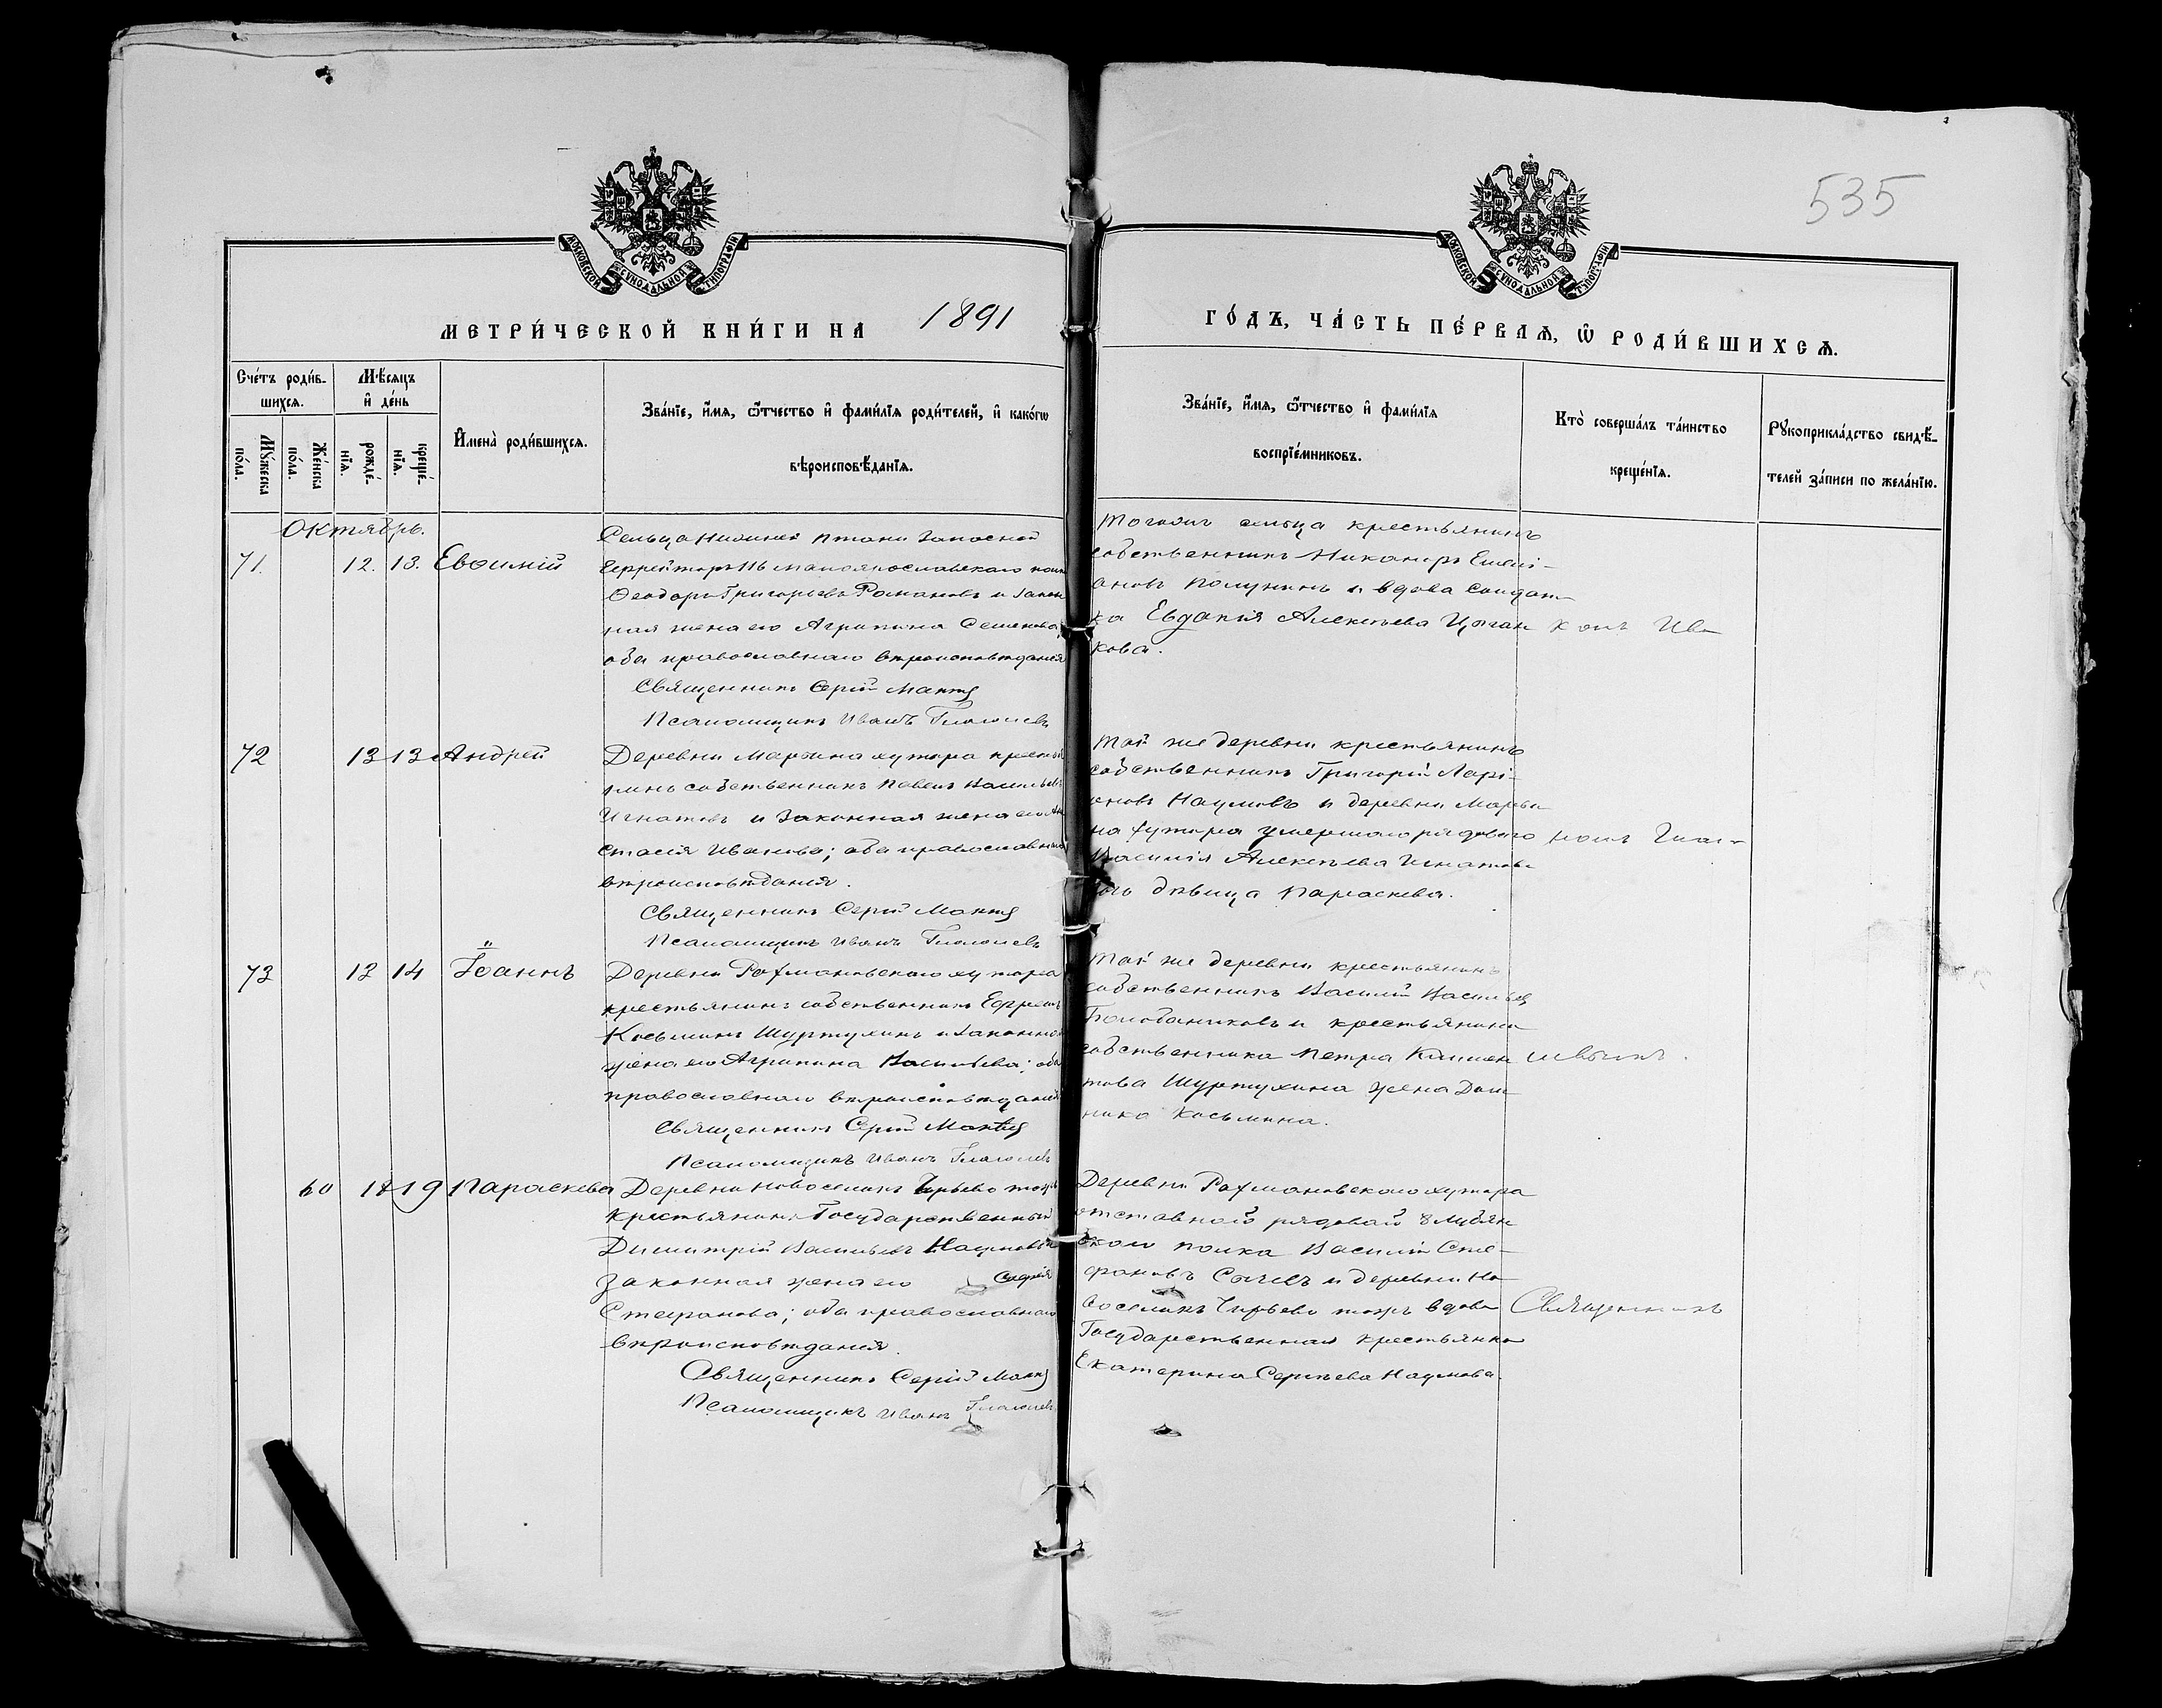 535
МОСКОВСКОЙ СѴНОДАЛЬНОЙ ТИПОГРАФІИ
МОСКОВСКОЙ СѴНОДАЛЬНОЙ ТИПОГРАФІИ
МЕТРИ́ЧЕСКОЙ КНИ́ГИ НА 1891
ГО́ДЪ, ЧА́СТЬ ПЕ́РВАѦ, Ѡ҆ РОДИ́ВШИХСѦ.
Сче́тъ роди́в-
шихсѧ.
Мѣ́сѧцъ
и҆ де́нь
Мꙋ́жеска
по́ла.
Же́нска
по́ла.
рожде́-
нїѧ.
креще́-
нїѧ.
И҆мена̀ роди́вшихсѧ.
Зва́нїе, и҆́мѧ, ѻ҆́тчество и҆ фами́лїѧ роди́телей, и҆ како́гѡ
вѣроисповѣ́данїѧ.
Зва́нїе, и҆́мѧ, ѻ҆́тчество и҆ фами́лїѧ
воспрїе́мниковъ.
Кто̀ соверша́лъ та́инство
креще́нїѧ.
Рꙋкоприкла́дство свидѣ́-
телей за́писи по жела́нїю.
Октябрь.
71. 12. 13. Евѳимій
Сельца Нижней запасной
Ѳеодоръ Григорьевъ Романовъ и закон
ная жена его Агрипина Семенова,
оба православнаго вѣроисповѣданія
Священникъ Сергій
Псаломщикъ Иванъ Глаголевъ
Тогожъ сельца крестьянинъ
собственникъ Никаноръ
ановъ Полунинъ и вдова солдат-
ка Евдокія Алексѣева Цыган
кова.
72 13 13 Андрей
Деревни Марьина хутора крестья
нинъ собственникъ Павелъ Васильевъ
Игнатовъ и законная жена его Ана
стасія Иванова; оба православнаго
вѣроисповѣданія.
Священникъ Сергій
Псаломщикъ Иванъ Глаголевъ
Той же деревни крестьянинъ
собственникъ Григорій Ларі-
оновъ Наумовъ и деревни Марьи
на хутора умершаго рядового
Василія Алексѣева Игнатова
дочь дѣвица Параскева.
73 13 14 Іоаннъ
Деревни Рахмановскаго хутора
крестьянинъ собственникъ Ефремъ
Косьминъ Шуртухинъ и законная
жена его Агрипина Васильева; оба
православнаго вѣроисповѣданія
Священникъ Сергій
Псаломщикъ Иванъ Глаголевъ
Той же деревни крестьянинъ
собственникъ Василій Васильевъ
и крестьянина
собственника Петра Климен
това Шуртухина жена Дом
ника Косьмина.
60 18 19 Параскева
Деревни Новоселокъ тожъ
крестьянинъ Государственный
Димитрій Васильевъ Наумовъ и
законная жена его Софія
Стефанова; оба православнаго
вѣроисповѣданія.
Священникъ Сергій
Псаломщикъ Иванъ Глаголевъ
Деревни Рахмановскаго хутора
отставной рядовой
скаго полка Василій Сте-
фановъ Сычевъ и деревни Но
воселокъ тожъ вдова Священникъ
Государственная крестьянка
Екатерина Сергѣева Наумова.